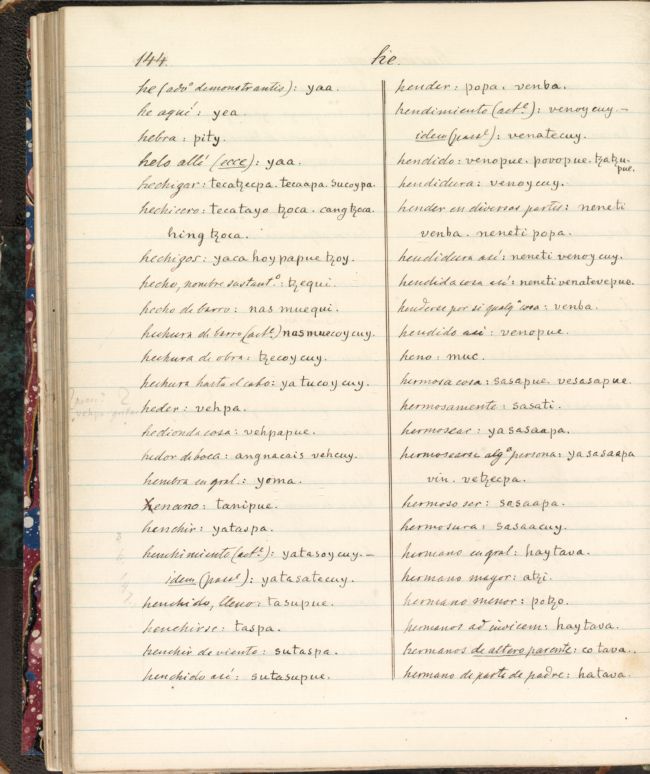 144.
he.
he (advº demonstrantis): yaa.
he aquí: yea.
hebra: pity.
helo allí (ecce): yaa.
hechizar: tecaꜩecpa. tecaapa. sucoypa.
hechicero: tecatayo ꜩoca. cang ꜩoca.
hing ꜩoca.
hechizos: yaca hoy papue ꜩoy.
hecho, nombre sustantº: ꜩequi.
hecho de barro: nas muequi.
hechura de barro (actª) nasmuecoycuy.
hechura de obra: ꜩecoycuy.
hechura hasta el cabo: yatucoycuy.
heder: vehpa.
hedionda cosa: vehpapue.
hedor de boca: angnacais vehcuy.
hembra en gral.: yoma.
henano: tanipue.
henchir: yataspa.
henchimiento (actº): yatasoycuy. –
idem (passº): yatasatecuy.
henchido, lleno: tasupue.
henchirse: taspa.
henchir de viento: sutaspa.
henchido así: sutasupue.
hender: popa. venba.
hendimiento (actº): venoycuy. –
idem (passº): venatecuy.
hendido: venopue. povopue. ꜩaꜩu-
pue.
hendidura: venoycuy.
hender en diversas partes: neneti
venba. neneti popa.
hendidura así: neneti venoycuy.
hendida cosa así: neneti venatevepue.
henderse por si qualqª cosa: venba.
hendido así: venopue.
heno: muc.
hermosa cosa: sasapue. vesasapue.
hermosamente: sasati.
hermosear: yasasaapa.
hermosearse algª persona: yasasaapa
vin. veꜩecpa.
hermoso ser: sasaapa.
hermosura: sasaacuy.
hermano en gral: haytava.
hermano mayor: aꜩi.
hermano menor: poꜩo.
hermanos ad invicem: haytava.
hermanos de altero parente: co tava.
hermano de parte de padre: hatava.